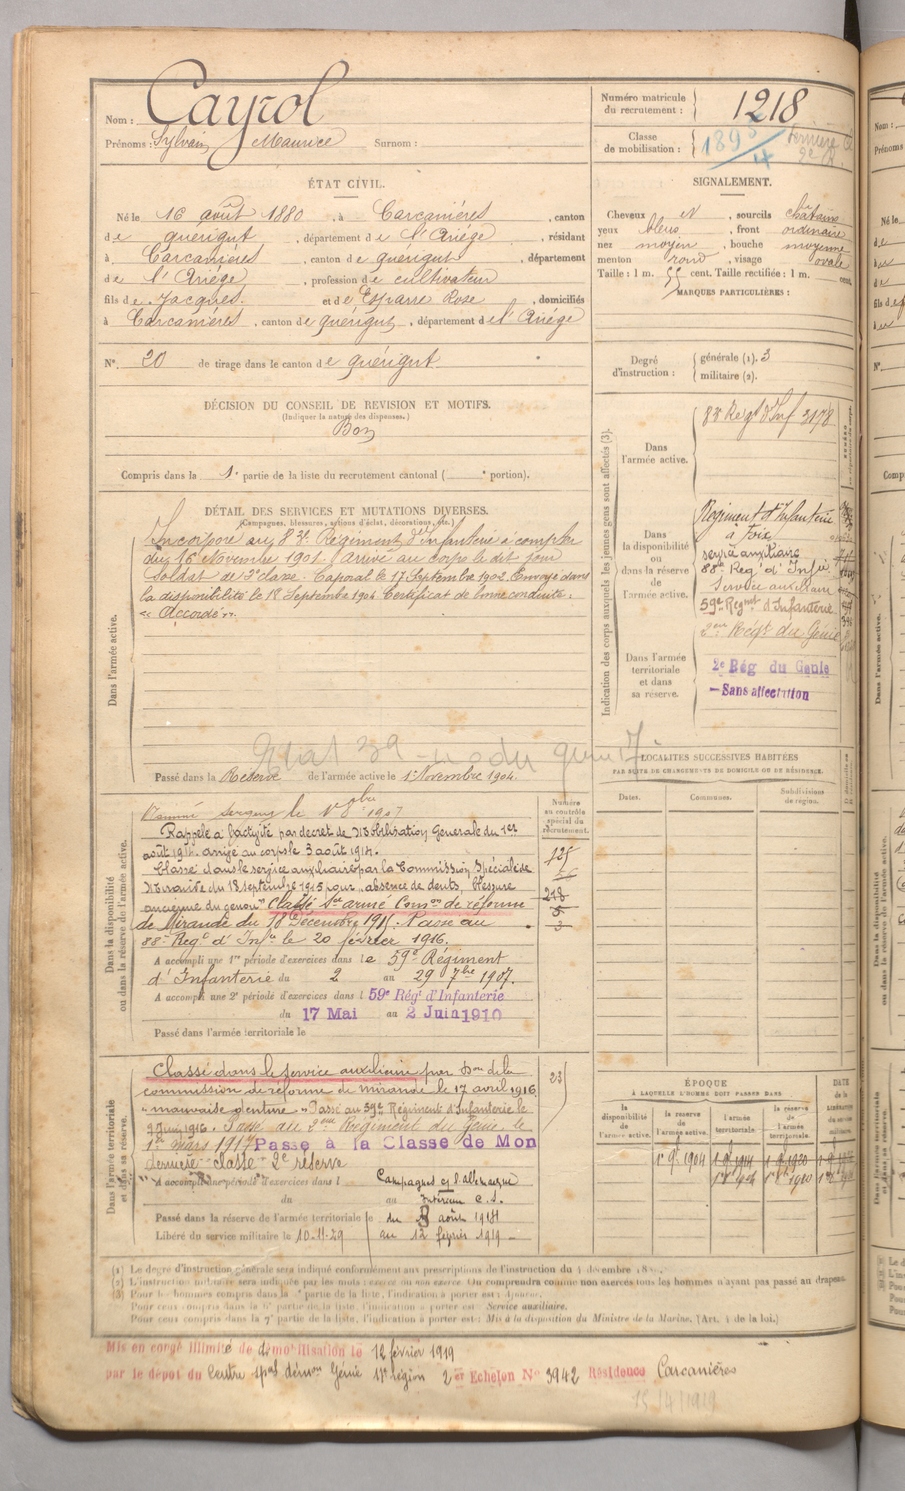 Nom : Cayrol
Prénoms : Sylvain Maurice Surnom :
Numéro matricule du recrutement : 1218
Classe de mobilisation :
ÉTAT CIVIL.
Né le 16 août 1880, à Carcanières, canton
de quérigut, département de l'Ariége, résidant
à Carcanières, canton de quérigut, département
de l'Ariége, profession de cultivateur
fils de Jacques et de Esparre Rose, domiciliés
à Carcanières, canton de quérigut, département de l'Ariége
N°. 20 de tirage dans le canton de quérigut
DÉCISION DU CONSEIL DE REVISION ET MOTIFS.
(Indiquer la nature des dispenses.)
Bon
Compris dans la 1e partie de la liste du recrutement cantonal ( e portion).
SIGNALEMENT.
Cheveux N, sourcils chatains
yeux bleus, front ordinaire
nez moyen, bouche moyenne
menton rond, visage ovale
Taille : 1 m. 55 cent. Taille rectifiée : 1 m. cent.
MARQUES PARTICULIÈRES :
Degré d'instruction : générale (1). 3
militaire (2).
DÉTAIL DES SERVICES ET MUTATIONS DIVERSES.
(Campagnes, blessures, actions d'éclat, décorations, etc.)
Dans l'armée active.
Incorporé au 83e Régiment d'Infanterie à compter
du 16 Novembre 1901. Arrivé au corps le dit jour
Soldat de 2e classe. Caporal le 17 Septembre 1902. Envoyé dans
la disponibilité le 18 Septembre 1904 Certificat de bonne conduite :
« Accordé ».
Passé dans la Réserve de l'armée active le 1er Novembre 1904.
Indication des corps auxquels les jeunes gens sont affectés (3).
Dans l'armée active.
83e Regt d'Inf 3178
Dans la disponibilité ou dans la réserve de l'armée active.
Régiment d'Infanterie
à Foix
88e Reg. d'Infie
Service auxiliaire
59e Regmt d'Infanterie
2eme Régt du Génie
Dans l'armée territoriale et dans sa réserve.
2e Rég du Genie
- Sans affectation
LOCALITÉS SUCCESSIVES HABITÉES
PAR SUITE DE CHANGEMENTS DE DOMICILE OU DE RÉSIDENCE.
Dates. Communes. Subdivisions de région.
Dans la disponibilité ou dans la réserve de l'armée active.
Numéro au contrôle spécial du recrutement.
Nommé sergent le 1er 8bre 1907
Rappelé à l'activité par decret de Mobilisation Generale du 1er
août 1914. arrivé au corps le 3 août 1914.
Classé dans le service auxiliaire par la Commission Spéciale de
Mirande du 18 septembre 1915 pour „absence de dents, blessure
ancienne du genou" Classé Sce armé Comon de réforme
de Mirande du 18 Décembre 1915. Passé au
88e Regt d'Infie le 20 février 1916.
A accompli une 1re période d'exercices dans le 59e Régiment
d'Infanterie du 2 au 29 7bre 1907.
A accompli une 2e période d'exercices dans l 59e Régt d'Infanterie
du 17 Mai au 2 Juin 1910
Passé dans l'armée territoriale le
Dans l'armée territoriale et dans sa réserve.
Classé dans le service auxiliaire par Don de la
commission de réforme de mirande le 17 avril 1916
" mauvaise denture " Passé au 59e Régiment d'Infanterie le
Juin 1916. Passé au 2eme Régiment du Génie le
1er mars 1917 Passe à la Classe de Mon
dernière classe 2e réserve
23
A accompli une période d'exercices dans l
du au
Campagnes c/ l'Allemagne
Intérieur C.S.
Passé dans la réserve de l'armée territoriale le
du 3 août 1914
Libéré du service militaire le 10-11-29
au 12 février 1919
ÉPOQUE
À LAQUELLE L'HOMME DOIT PASSER DANS
la disponibilité de l'armée active. la réserve de l'armée active. l'armée territoriale. la réserve de l'armée territoriale. DATE de la LIBÉRATION du service militaire.
(1) Le degré d'instruction générale sera indiqué conformément aux prescriptions de l'instruction du 4 décembre 18
(2) L'instruction militaire sera indiquée par les mots : exercé ou non exercé. On comprendra comme non exercés tous les hommes n'ayant pas passé au drapeau.
(3) Pour les hommes compris dans la partie de la liste, l'indication à porter est :
Pour ceux compris dans la 6e partie de la liste, l'indication à porter est : Service auxiliaire.
Pour ceux compris dans la 7e partie de la liste, l'indication à porter est : Mis à la disposition du Ministre de la Marine. (Art. 4 de la loi.)
Mis en congé illimité de démobilisation le 12 février 1919
par le dépot du Centre démon Génie 17e région 2er Echelon N° 3942 Résidence Carcanières
15/4/1919